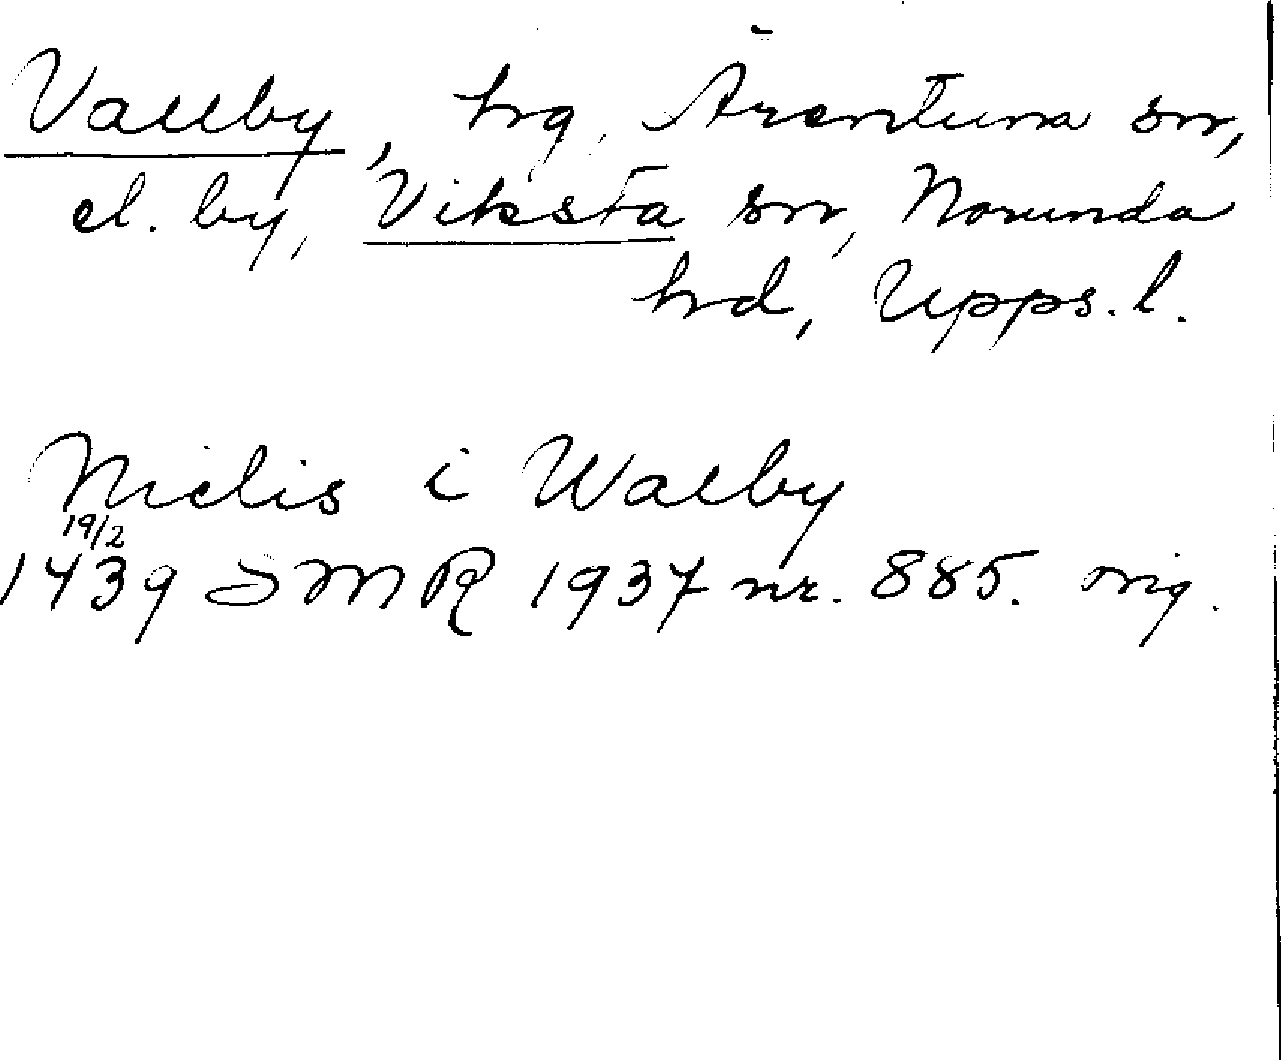 Vallby, hg, Ärentuna sn,
el. by, Viksta sn, Norunda
hd, Upps. l.
Nielis i Walby
19/2
1439 SMR 1937 nr. 885. orig.